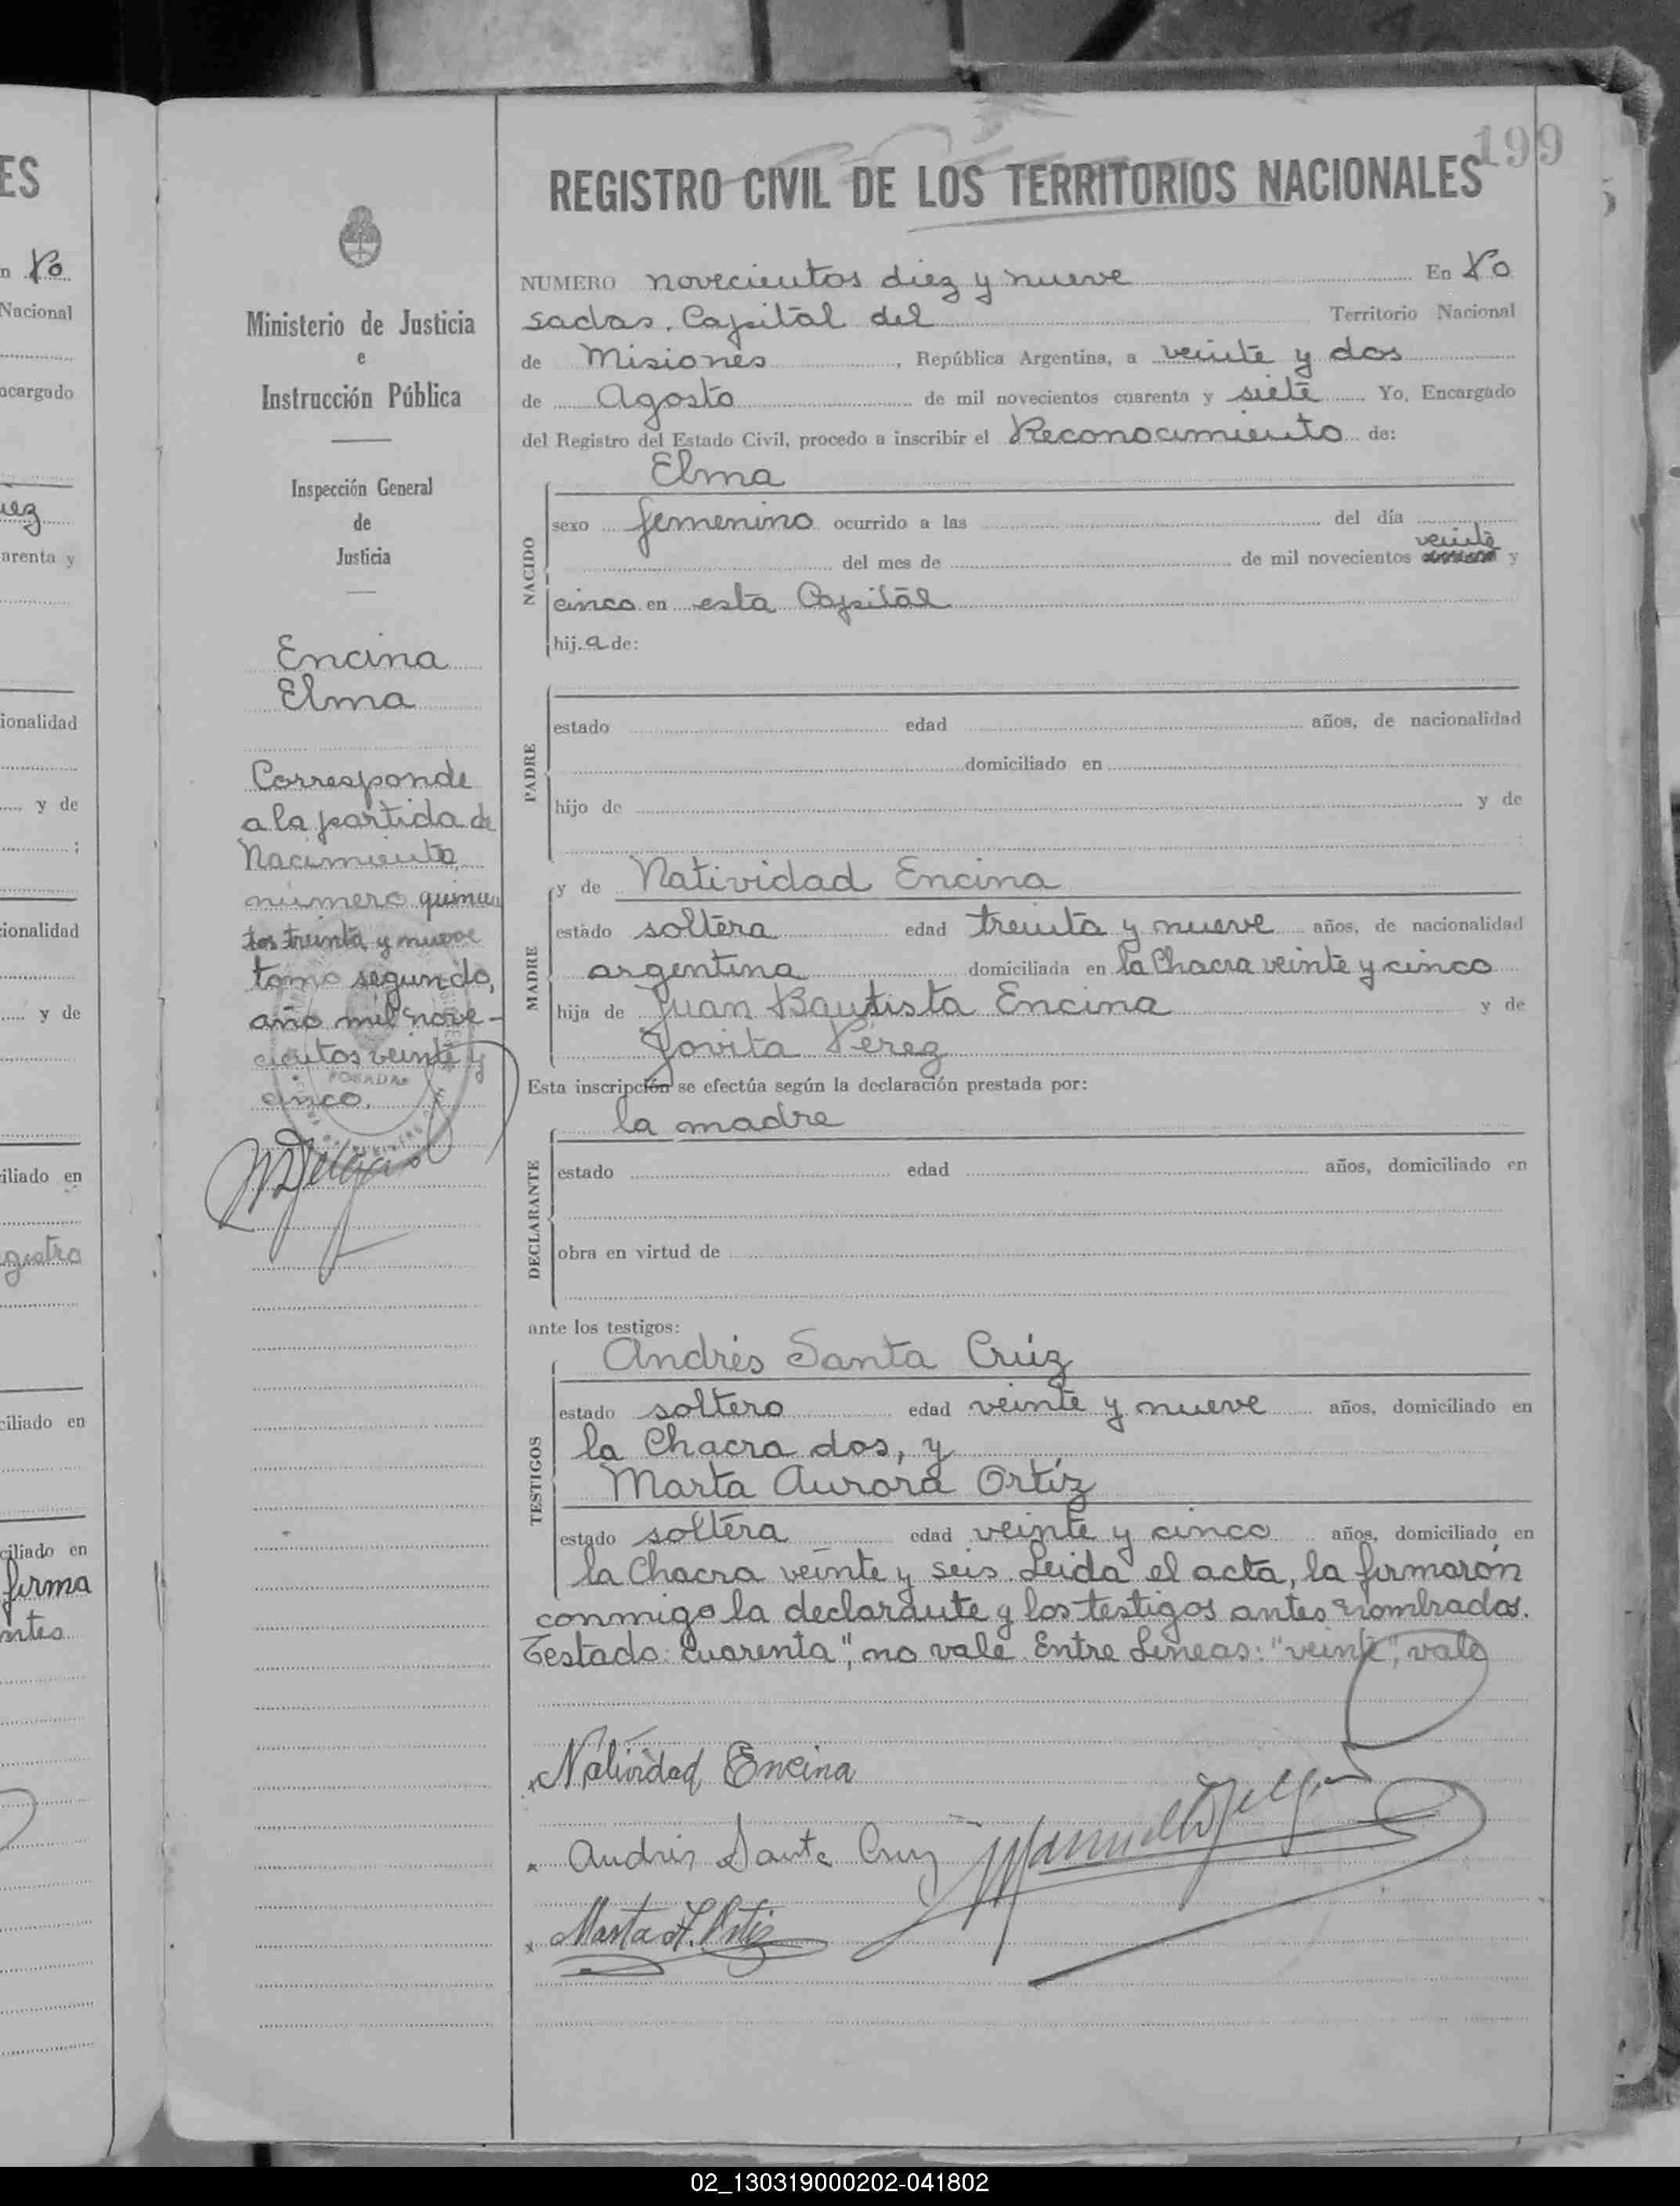 199
REGISTRO CIVIL DE LOS TERRITORIOS NACIONALES
Ministerio de Justicia
e
Instrucción Pública
Inspección General
de
Justicia
Encina
Elma
Corresponde
a la partida de
Nacimiento
número quinien
tos treinta y nueve
tomo segundo,
año mil nove-
cientos veinte y
cinco.
POSADAS
NUMERO novecientos diez y nueve En Po
sadas, Capital del Territorio Nacional
de Misiones, República Argentina, a veinte y dos
de Agosto de mil novecientos cuarenta y siete Yo, Encargado
del Registro del Estado Civil, procedo a inscribir el Reconocimiento de:
Elma
NACIDO
sexo femenino ocurrido a las del día
veinte
del mes de de mil novecientos y
cinco en esta Capital
hij.a de:
PADRE
estado edad años, de nacionalidad
domiciliado en
hijo de y de
MADRE
y de Natividad Encina
estado soltera edad treinta y nueve años, de nacionalidad
argentina domiciliada en la Chacra veinte y cinco
hija de Juan Bautista Encina y de
Jovita Pérez
Esta inscripción se efectúa según la declaración prestada por:
la madre
DECLARANTE
estado edad años, domiciliado en
obra en virtud de
ante los testigos:
TESTIGOS
Andrés Santa Crúz
estado soltero edad veinte y nueve años, domiciliado en
la Chacra dos, y
Marta Aurora Ortíz
estado soltera edad veinte y cinco años, domiciliado en
la Chacra veinte y seis. Leida el acta, la firmarón
conmigo la declarante y los testigos antes nombrados.
Testado: "cuarenta", no vale. Entre Lineas: "veinte", vale
Natividad Encina
Andrés Santa Cruz
Marta A. Ortiz
ES
n Po
Nacional
ncargado
iez
arenta y
ionalidad
y de
;
cionalidad
y de
iliado en
gistro
ciliado en
ciliado en
firma
ntes
02_130319000202-041802